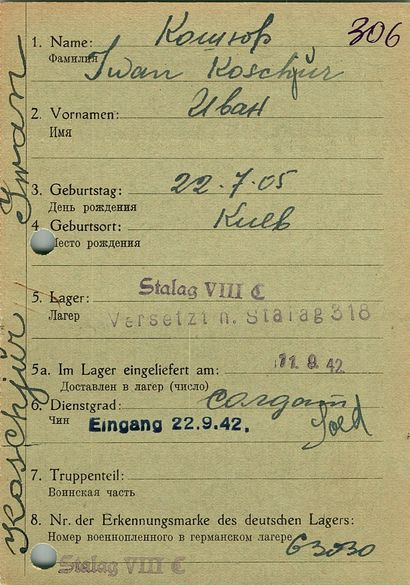 306
1. Name: Кошюр
Фамилия
Iwan Koschjur
2. Vornamen: Иван
Имя
3. Geburtstag: 22.7.05
День рождения
4 Geburtsort: Киев
Место рождения
5. Lager: Stalag VIII C
Лагер
Versetzt n. Stalag 318
5a. Im Lager eingeliefert am: 11.9.42
Доставлен в лагер (число)
6. Dienstgrad: солдат
Чин
Eingang 22.9.42.
Sold
7. Truppenteil:
Воинская часть
8. Nr. der Erkennungsmarke des deutschen Lagers:
Номер военнопленного в германском лагере
63030
Stalag VIII C
Koschjur Iwan